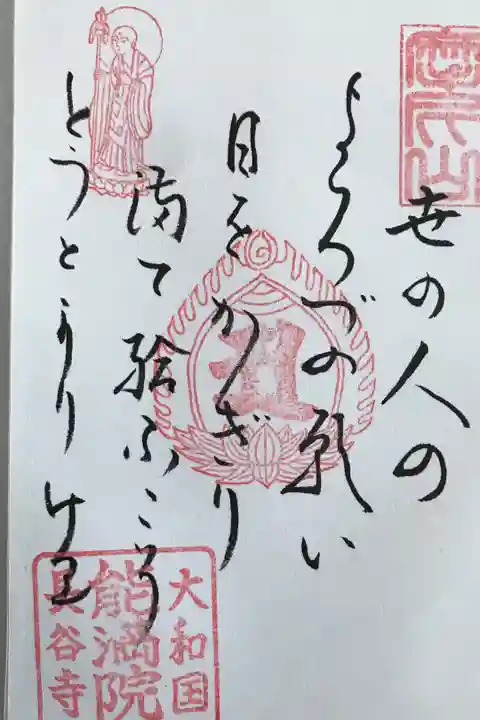 世の人の
よろづの願い
日をかぎり
満て給ふこそ
とうとかりけれ
大和国
能満院
長谷寺